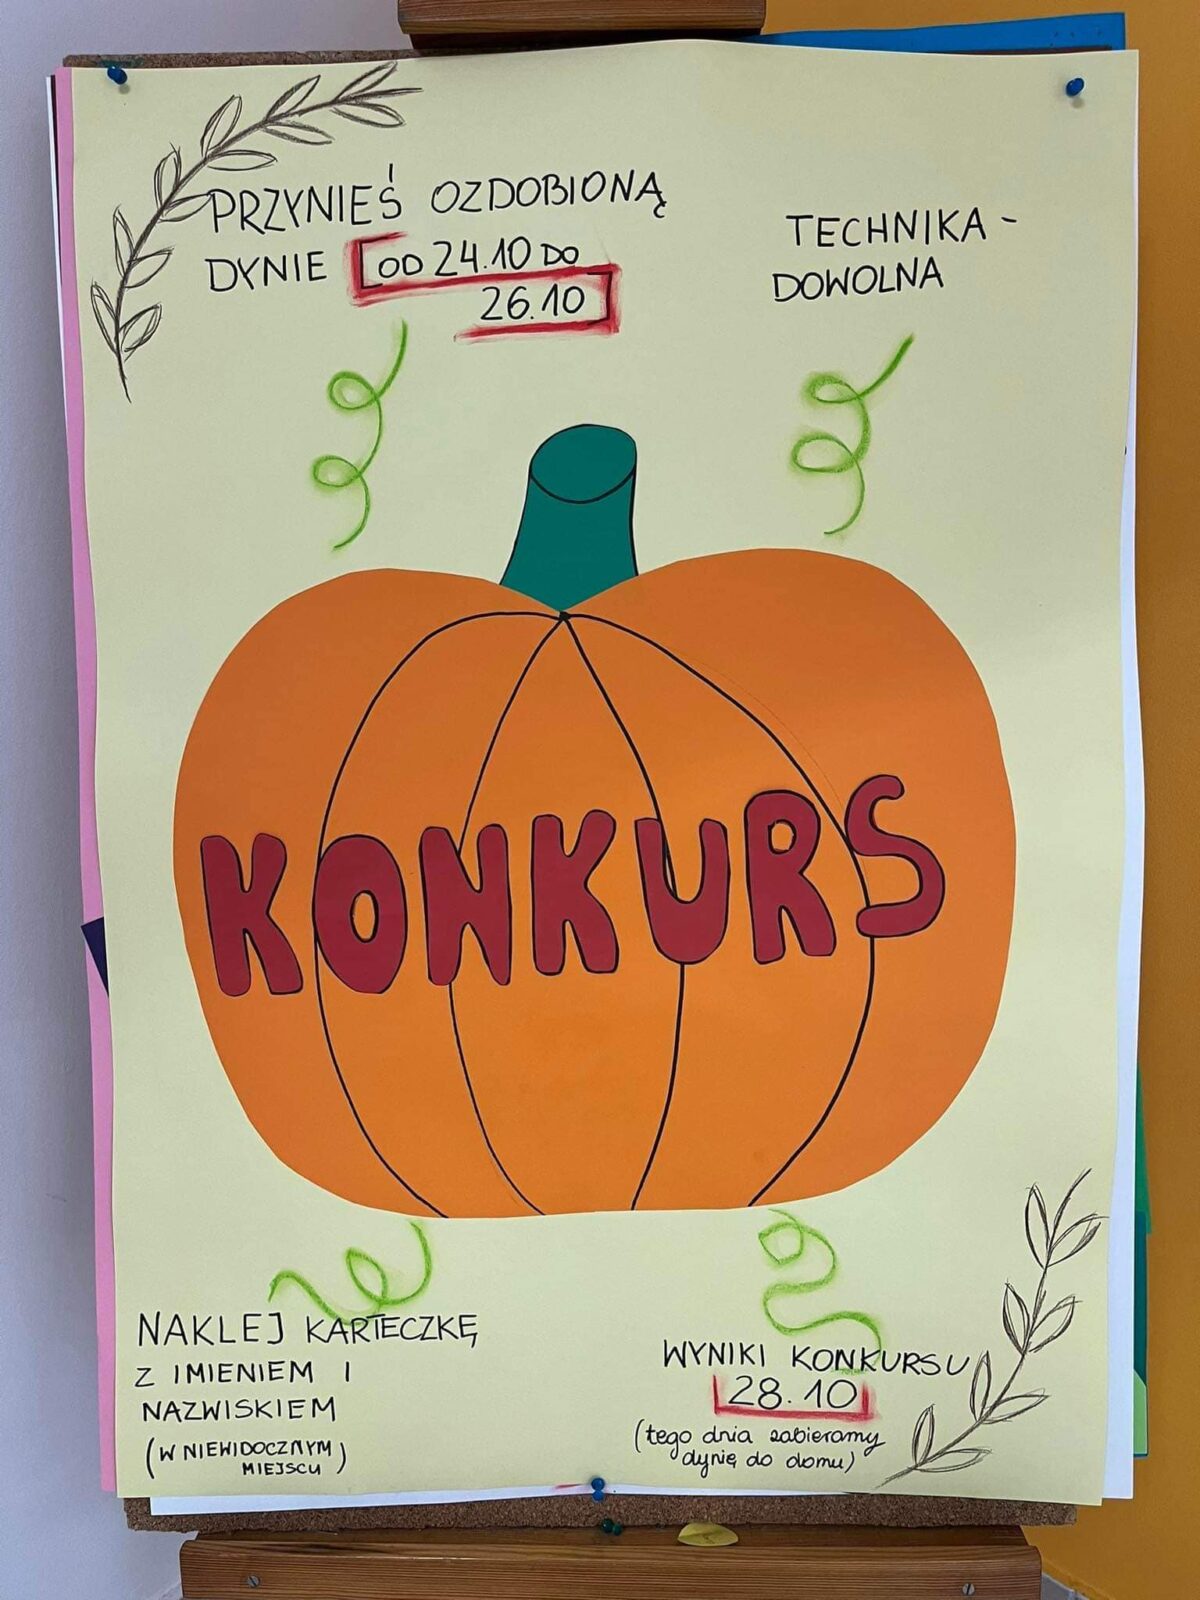 PRZYNIEŚ OZDOBIONĄ
DYNIE [OD 24.10 DO
26.10]
TECHNIKA -
DOWOLNA
KONKURS
NAKLEJ KARTECZKĘ
Z IMIENIEM I
NAZWISKIEM
(W NIEWIDOCZNYM
MIEJSCU)
WYNIKI KONKURSU
28.10
(tego dnia zabieramy
dynię do domu)